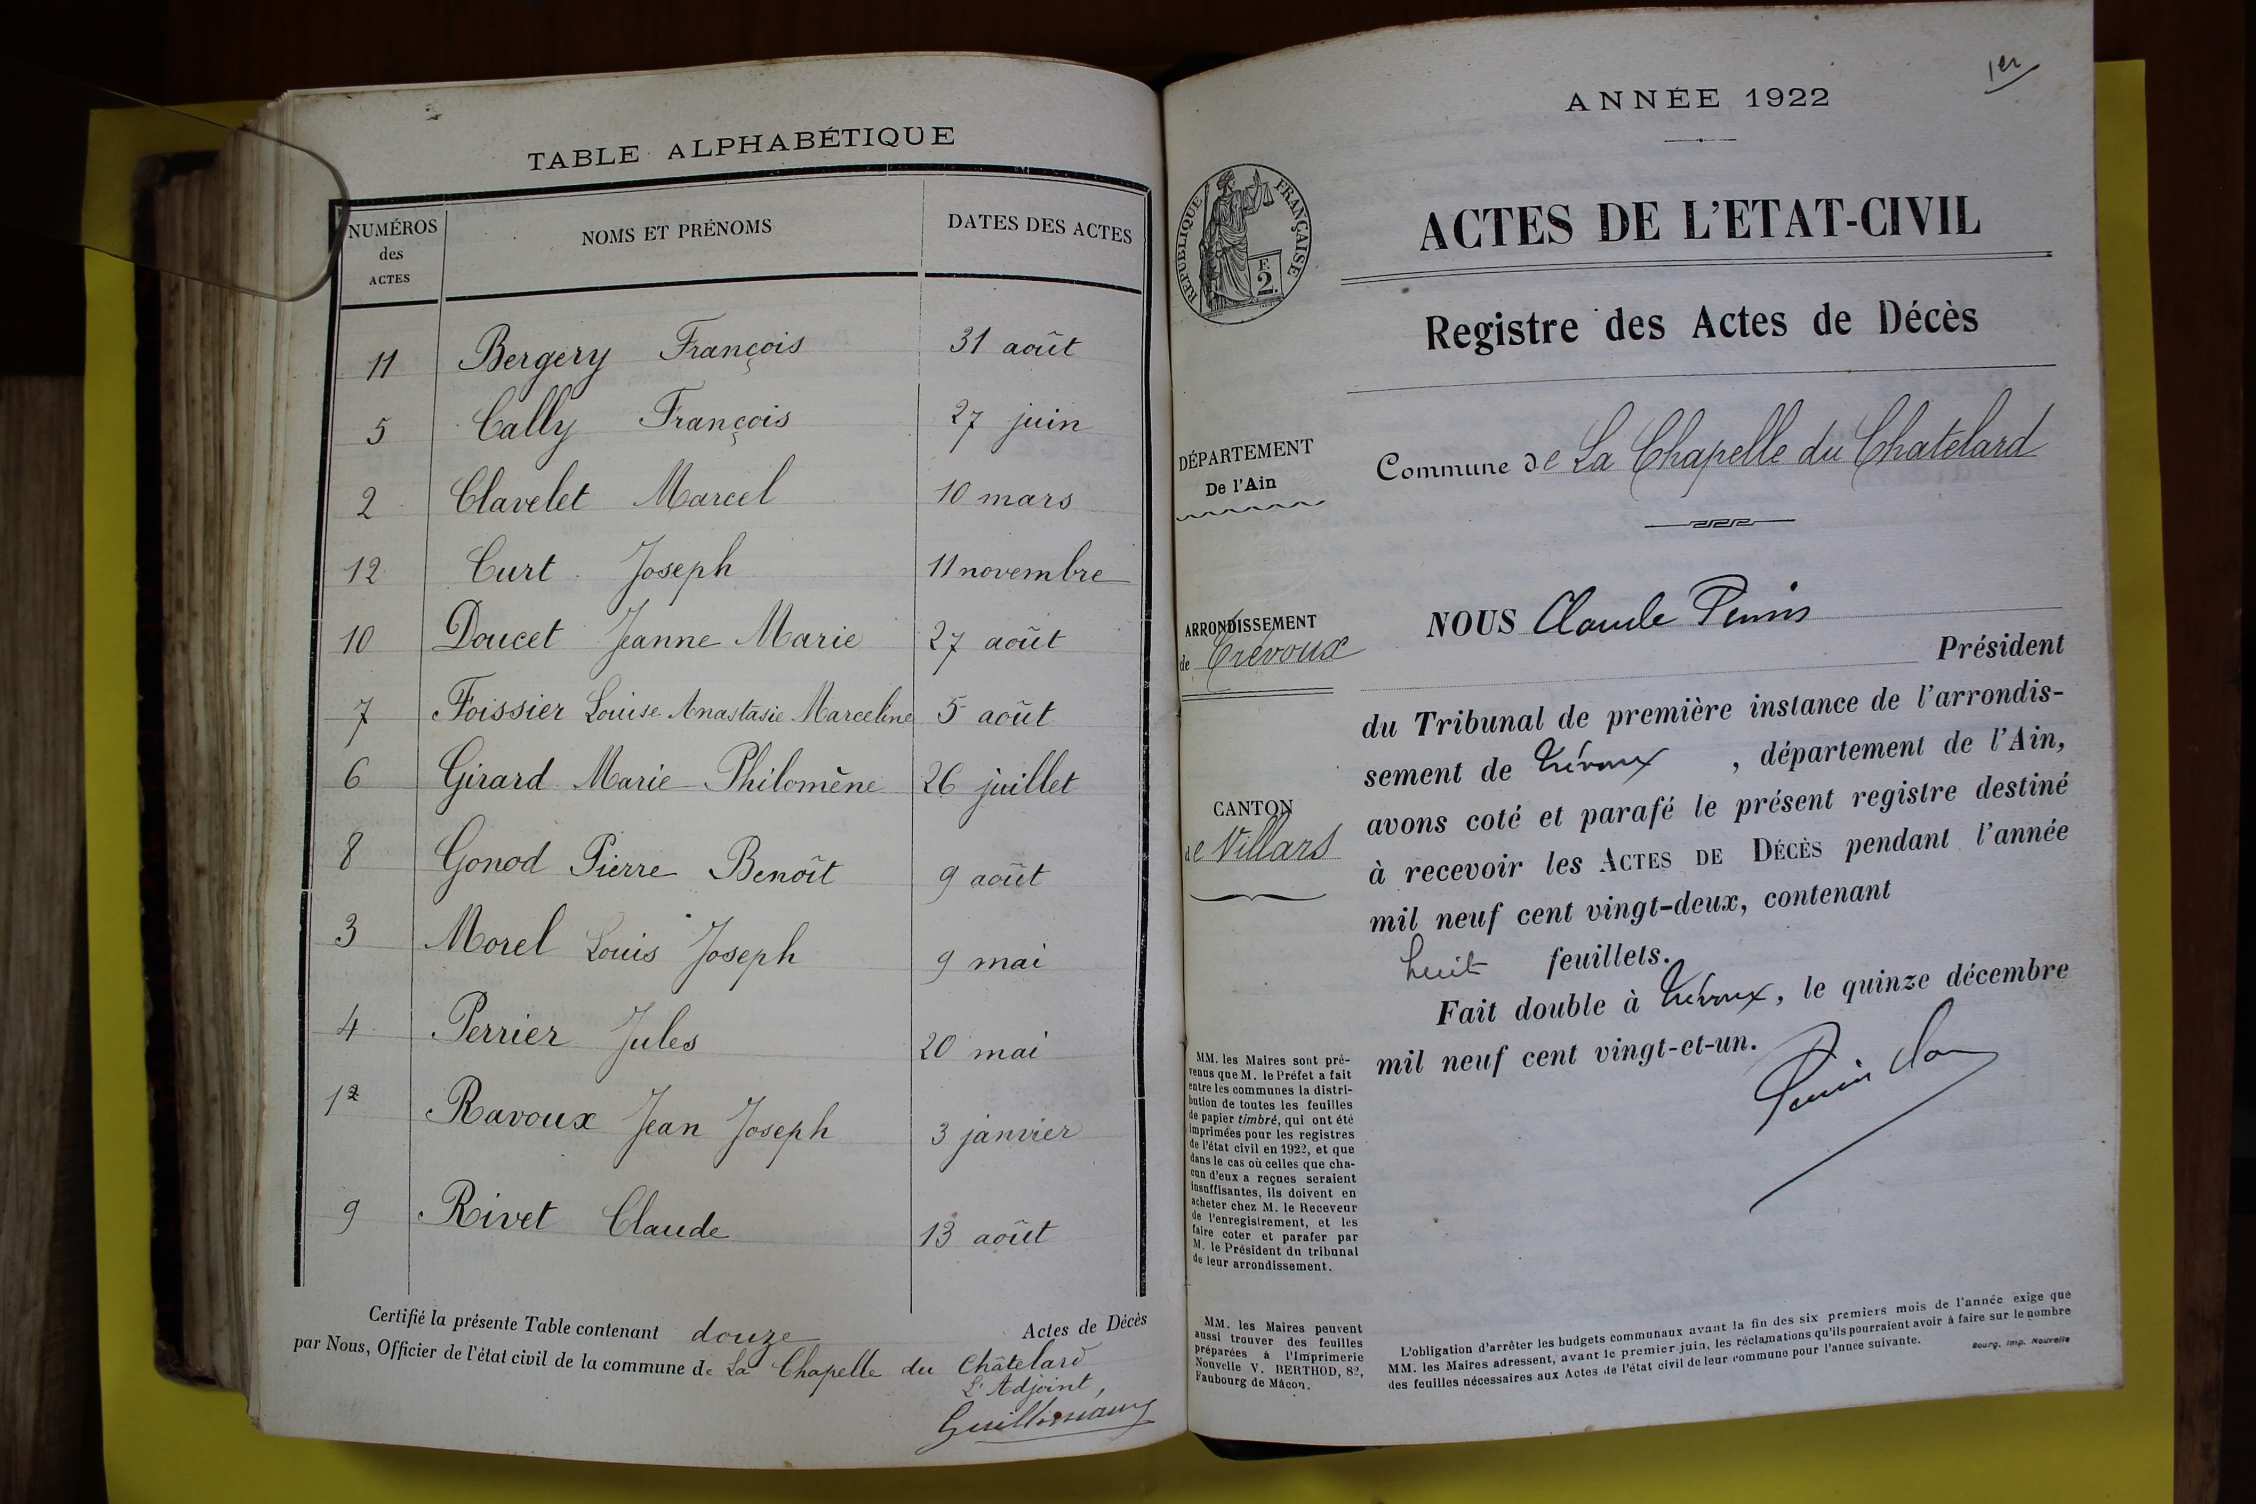 TABLE ALPHABÉTIQUE
NUMÉROS des ACTES NOMS ET PRÉNOMS DATES DES ACTES
11 Bergery François 31 août
5 Cally François 27 juin
2 Clavelet Marcel 10 mars
12 Curt Joseph 11 novembre
10 Doucet Jeanne Marie 27 août
7 Foissier Louise Anastasie Marceline 5 août
6 Girard Marie Philomène 26 juillet
8 Gonod Pierre Benoît 9 août
3 Morel Louis Joseph 9 mai
4 Perrier Jules 20 mai
1 Ravoux Jean Joseph 3 janvier
9 Rivet Claude 13 août
Certifié la présente Table contenant douze Actes de Décès
par Nous, Officier de l'état civil de la commune de La Chapelle du Châtelard
L'Adjoint,
1er
ANNÉE 1922
RÉPUBLIQUE FRANÇAISE
F.
2.
ACTES DE L'ETAT-CIVIL
Registre des Actes de Décès
DÉPARTEMENT
De l'Ain
Commune de La Chapelle du Chatelard
ARRONDISSEMENT
de Trévoux
CANTON
de Villars
NOUS Claude
Président
du Tribunal de première instance de l'arrondis-
sement de Trévoux, département de l'Ain,
avons coté et parafé le présent registre destiné
à recevoir les ACTES DE DÉCÈS pendant l'année
mil neuf cent vingt-deux, contenant
huit feuillets.
Fait double à Trévoux, le quinze décembre
mil neuf cent vingt-et-un.
MM. les Maires sont pré-
venus que M. le Préfet a fait
entre les communes la distri-
bution de toutes les feuilles
de papier timbré, qui ont été
imprimées pour les registres
de l'état civil en 1922, et que
dans le cas où celles que cha-
cun d'eux a reçues seraient
insuffisantes, ils doivent en
acheter chez M. le Receveur
de l'enregistrement, et les
faire coter et parafer par
M. le Président du tribunal
de leur arrondissement.
MM. les Maires peuvent
aussi trouver des feuilles
préparées à l'Imprimerie
Nouvelle V. BERTHOD, 82,
Faubourg de Mâcon.
L'obligation d'arrêter les budgets communaux avant la fin des six premiers mois de l'année exige que
MM. les Maires adressent, avant le premier juin, les réclamations qu'ils pourraient avoir à faire sur le nombre
des feuilles nécessaires aux Actes de l'état civil de leur commune pour l'année suivante.
Bourg. Imp. Nouvelle